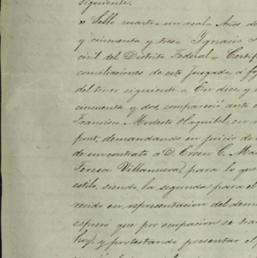 siguiente.
" Sello cuarto un real. Años de
y cincuenta y tres. Ignacio
civil del Distrito Federal. Certifi
conciliaciones de este juzgado a fo
del tenor siguiente. En diez y
cincuenta y dos, compareció ante
Francisco Modesto
demandando en juicio de
de un contrato a D. C. Ma
Teresa Villanueva, para lo que
estilo, siendo la segunda para el
recido en representacion del dem
espuso que por ocupacion se
hoy, y protestando presentar el